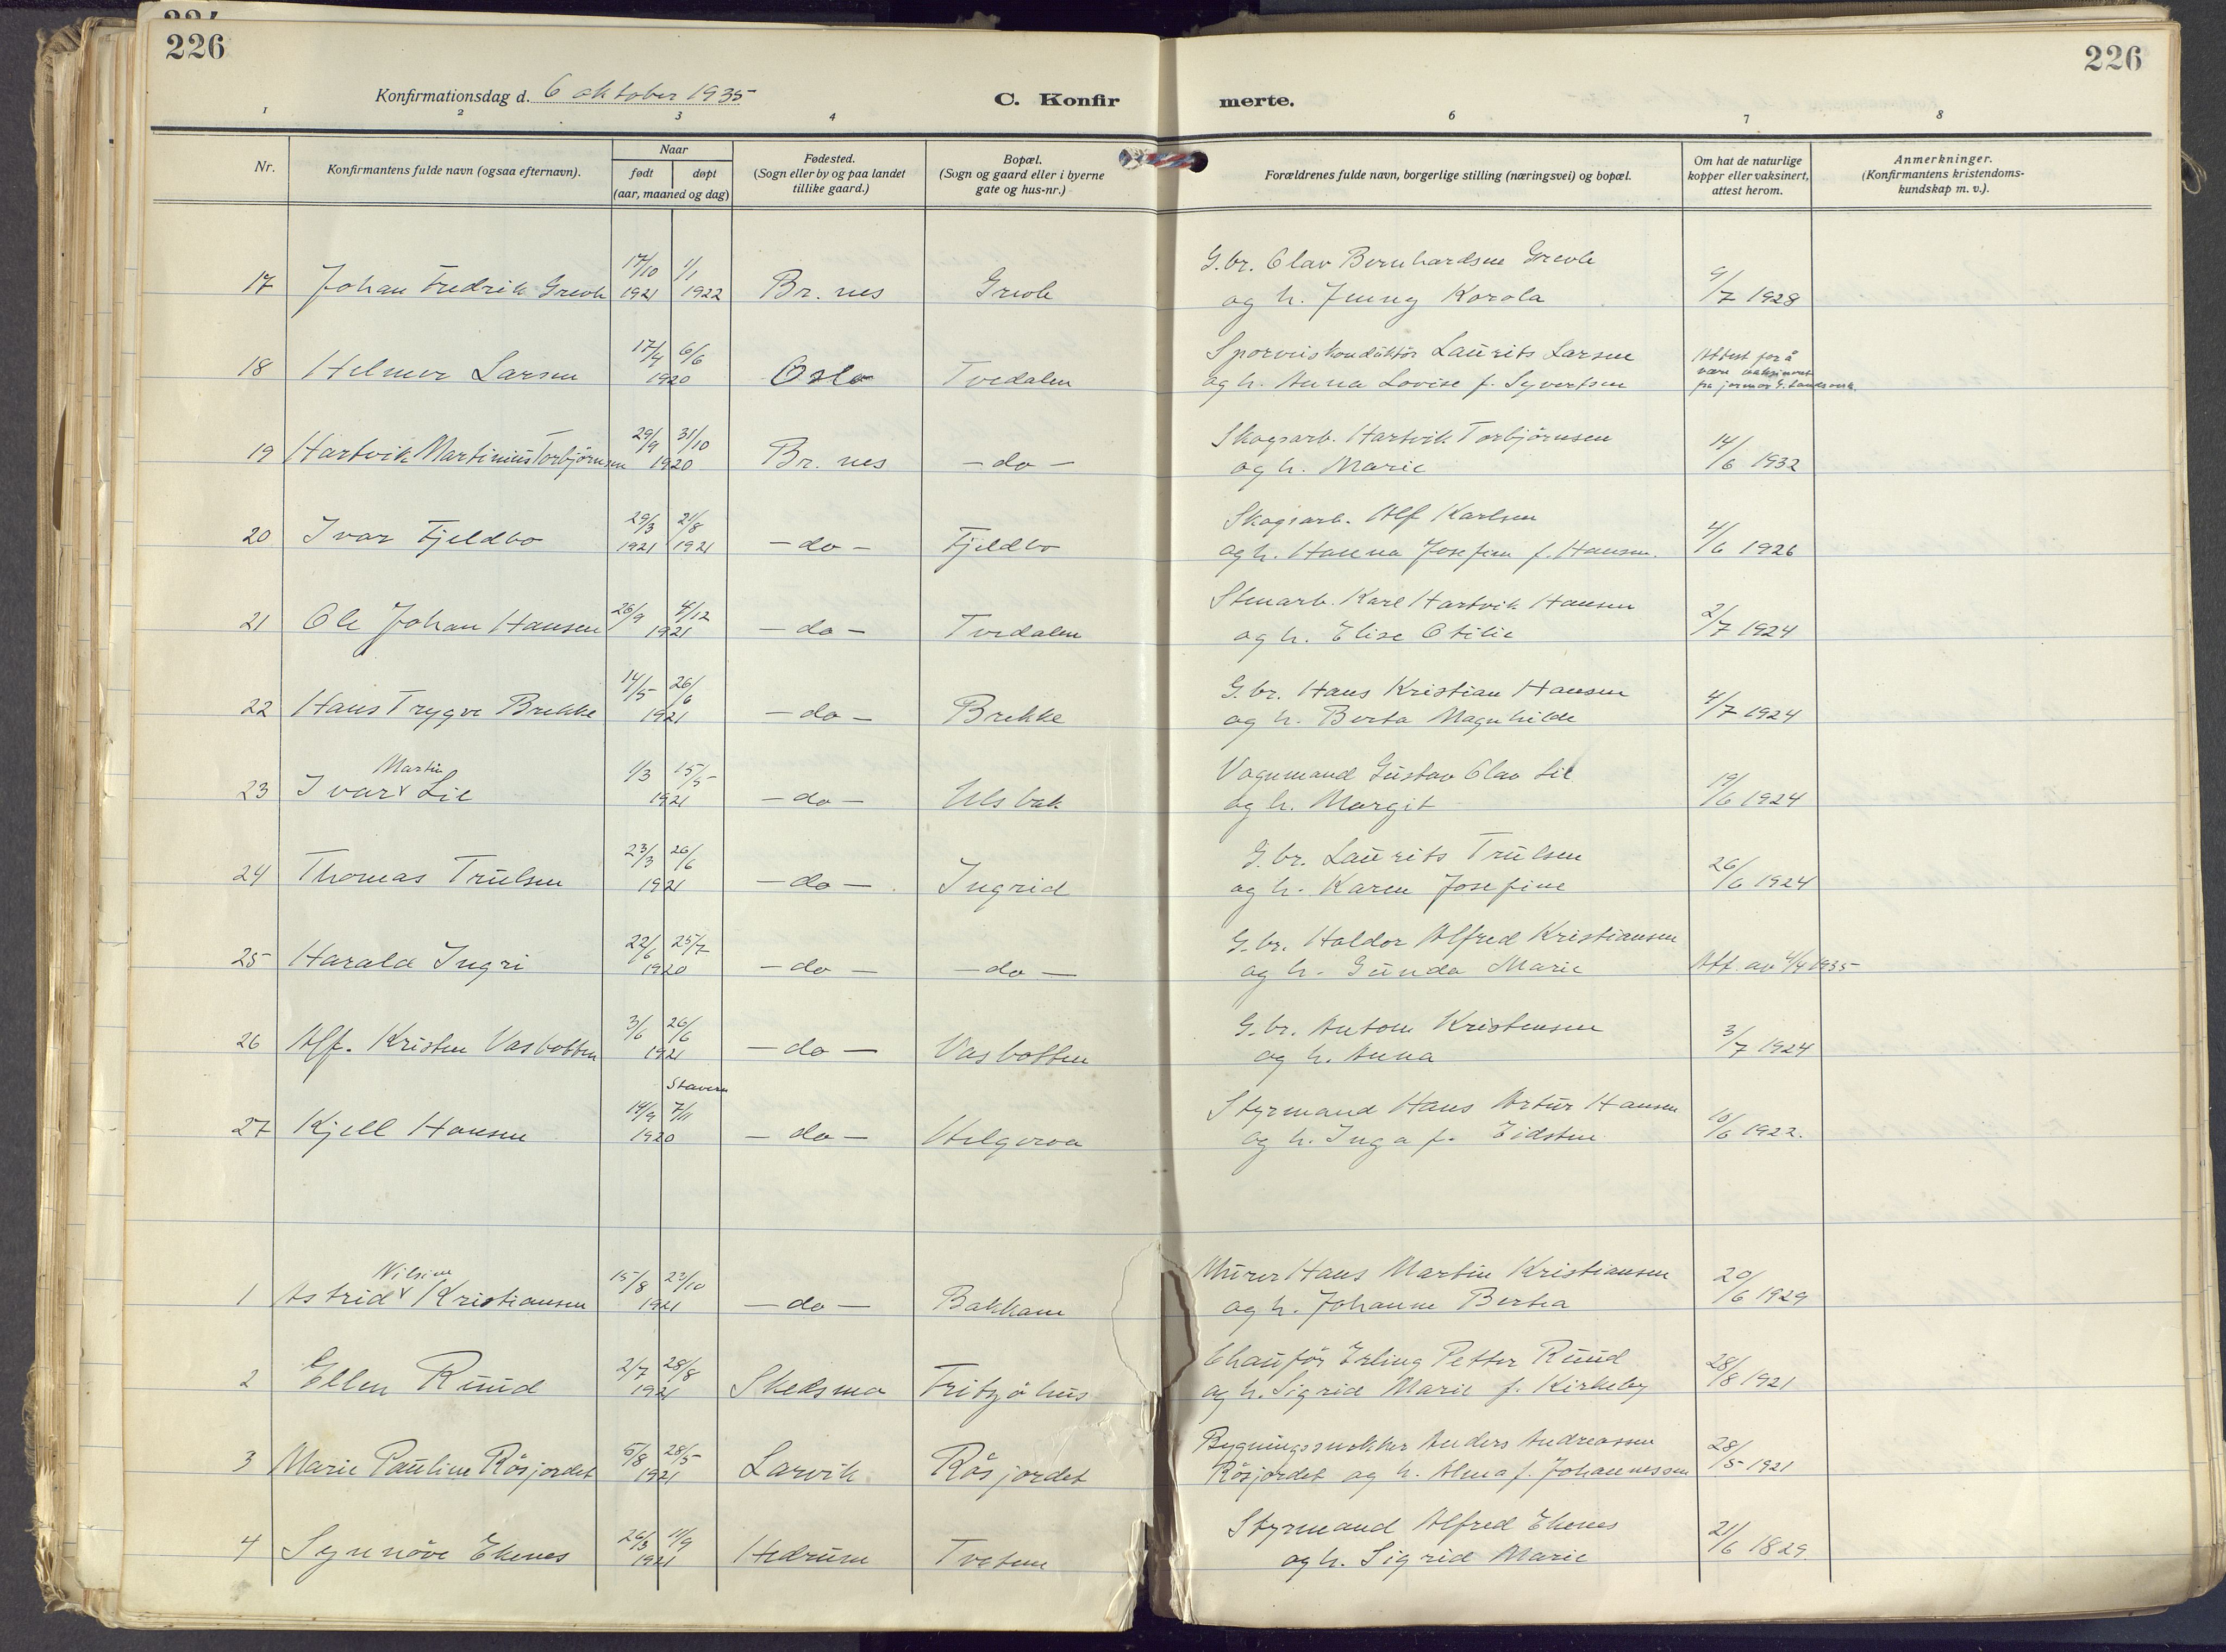 226
226
Konfirmationsdag d. 6 oktober 1935
C. Konfirmerte.
1 2 3 4 6 7 8
Nr.
Konfirmantens fulde navn (ogsaa efternavn).
Naar
født døpt
(aar, maaned og dag)
Fødested.
(Sogn eller by og paa landet
tillike gaard.)
Bopæl.
(Sogn og gaard eller i byerne
gate og hus-nr.)
Forældrenes fulde navn, borgerlige stilling (næringsvei) og bopæl.
Om hat de naturlige
kopper eller vaksinert,
attest herom.
Anmerkninger.
(Konfirmantens kristendoms-
kundskap m. v.).
17/10 1/1 G.br. Olav Bernhardsen Grevle
17 Johan Fredrik Grevle 1921 1922 Br.nes Grevle og h. Jenny Karola 9/7 1928
17/4 6/6 Sporveiskonduktör Laurits Larsen Attest for å
18 Helmer Larsen 1920 Oslo Tvedalen og h. Anna Lovise f. Syvertsen være vaksinert
29/9 31/10 Skogsarb. Hartvik Torbjörnsen
19 Hartvik Martinius Torbjörnsen 1920 Br.nes - do - og h. Marie 14/6 1932
29/3 21/8 Skogsarb. Alf Karlsen
20 Ivar Fjeldbo 1921 1921 - do - Fjeldbo og h. Hanna Josefine f. Hansen. 4/6 1926
26/9 4/12 Stenarb. Karl Hartvik Hansen
21 Ole Johan Hansen 1921 - do - Tvedalen og h. Elise Otilie 2/7 1924
14/5 26/6 G.br. Hans Kristian Hansen
22 Hans Trygve Brekke 1921 - do - Brekke og h. Berta Magnhilde 4/7 1924
Martin 1/3 15/5 Vognmand Gustav Olav Lie
23 Ivar Lie 1921 - do - og h. Margit 19/6 1924
23/3 26/6 G.br. Laurits Trulsen
24 Thomas Trulsen 1921 - do - Ingrid og h. Karen Josefine 26/6 1924
22/6 25/7 G.br. Haldor Alfred Kristiansen
25 Harald Ingri 1920 - do - - do - og h. Gunda Marie Att. av 4/4 1935
3/6 26/6 G.br. Anton Kristensen
26 Alf. Kristen Vasbotten 1921 - do - Vasbotten og h. Anna 3/7 1924
Stavern
14/9 7/11 Styrmand Hans Artur Hansen
27 Kjell Hansen 1920 - do - Helgeroa og h. Inga f. Eidsten 10/6 1922.
Nilsine 15/8 23/10 Murer Hans Martin Kristiansen
1 Astrid Kristiansen 1921 - do - Bakkane og h. Johanne Bertea 20/6 1929
2/7 28/8 Chauför Erling Petter Ruud
2 Ellen Ruud 1921 Skedsmo Fritzöhus og h. Sigrid Marie f. Kirkeby 28/8 1921
5/8 28/5 Bygningssnekker Anders Andreassen
3 Marie Pauline Rösjordet 1921 Larvik Råsjordet Rösjordet og h. Alma f. Johannessen 28/5 1921
26/3 11/9 Styrmand Alfred Ekenes
4 Synnöve Ekenes 1921 Hedrum Tveten og h. Sigrid Marie 21/6 1829.